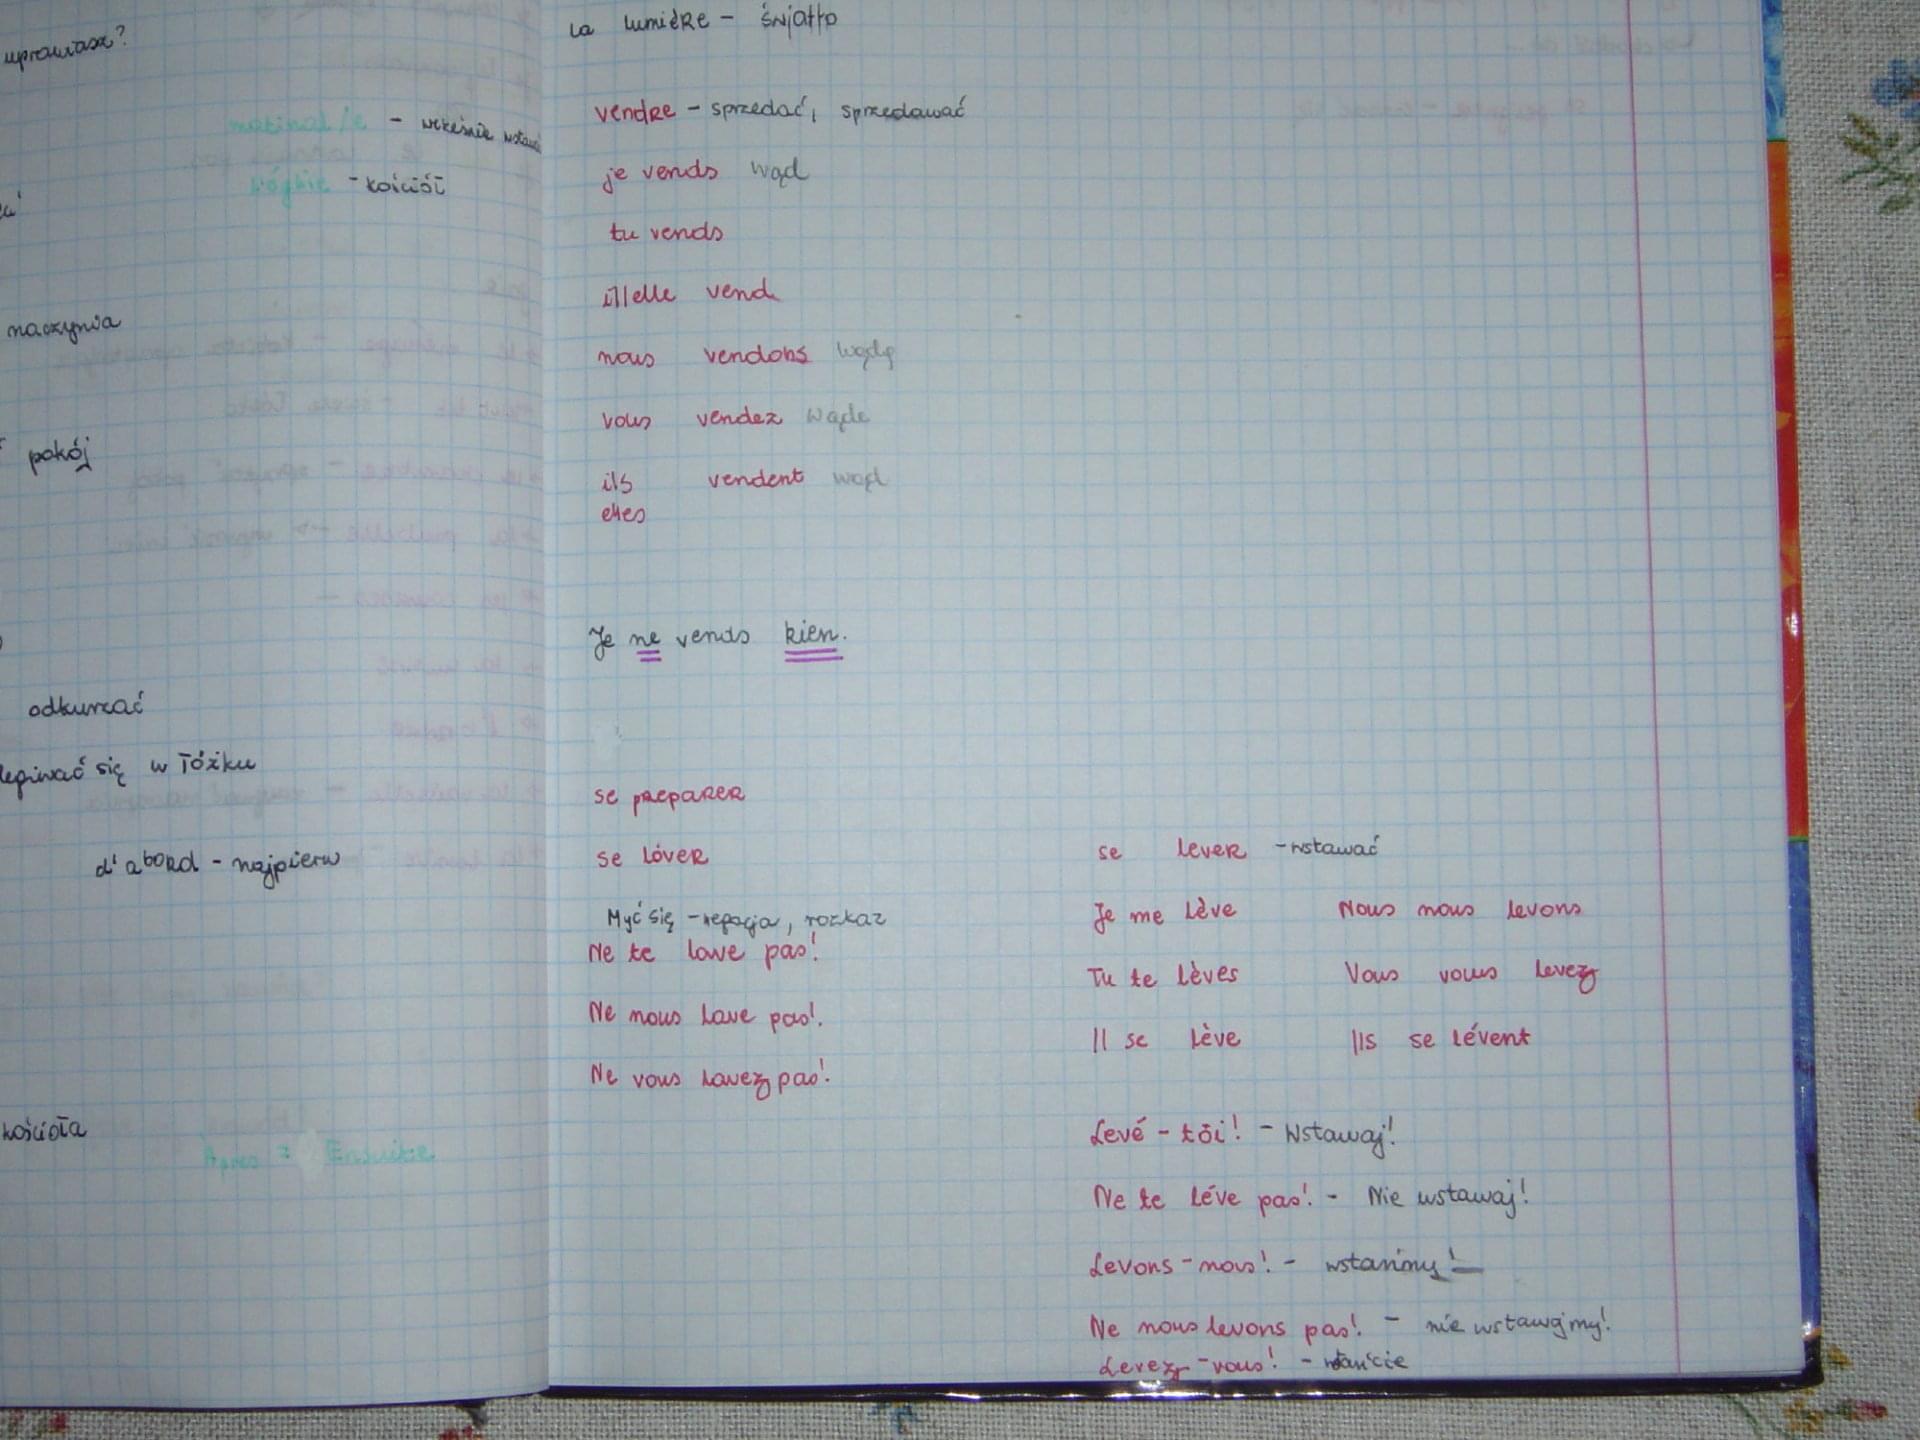 uprawiasz?
matinal/e - wcześnie wstawać
- kościół
naczynia
pokój
odkurzać
się w łóżku
d'abord - najpierw
kościoła
Apres = Ensuite
La lumiére - światło
vendre - sprzedać, sprzedawać
je vends wąd
tu vends
il/elle vend
nous vendons wądą
vous vendez wąde
ils vendent wąd
elles
Je ne vends rien.
se preparer
se láver
Myć się - negacja, rozkaz
Ne te lave pas!
Ne nous lave pas!
Ne vous lavez pas!
se lever - wstawać
Je me lève Nous nous levons
Tu te lèves Vous vous levez
Il se lève Ils se lévent
Levé - toi! - Wstawaj!
Ne te léve pas! - Nie wstawaj!
Levons - nous! - wstańmy!
Ne nous levons pas! - nie wstawajmy!
Levez - vous! - wstańcie